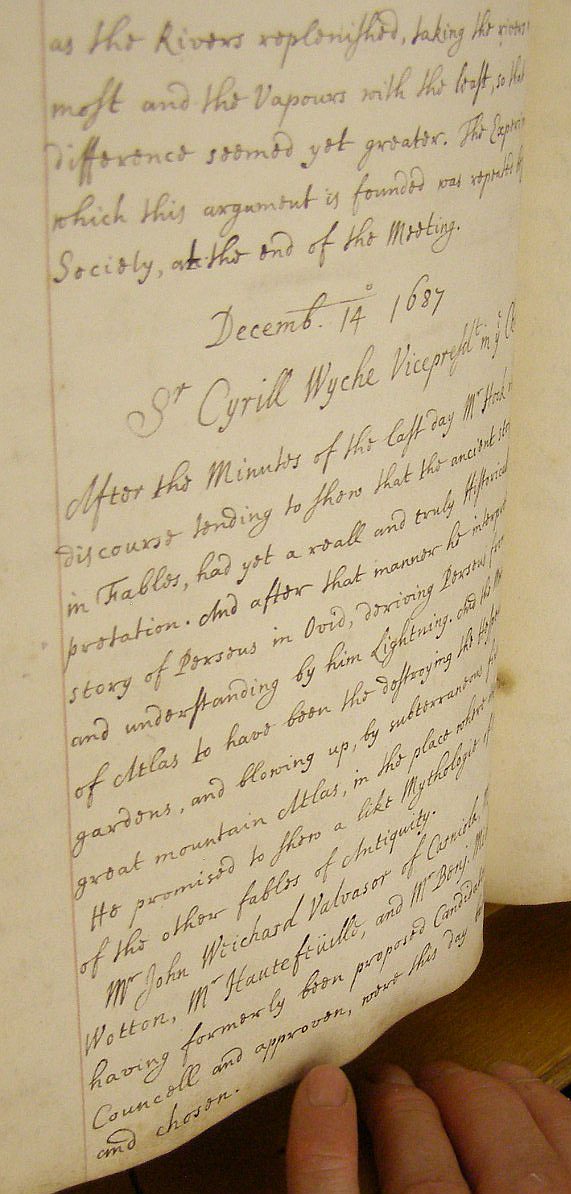 as the Rivers replenished, taking the rivers
most and the Vapours with the least, so that
difference seemed yet greater. The Experim
which this argument is founded was repeated
Society, at the end of the Meeting.
Decemb. 14° 1687
Sr Cyrill Wyche Vicepresdt in ye
After the Minutes of the last day Mr Hook
discourse tending to shew that the ancient
in Fables, had yet a reall and truly Historical
pretation. And after that manner he interpret
story of Perseus in Ovid, deriving Perseus
and understanding by him Lightning. And
of Atlas to have been the destroying the
gardens, and blowing up, by subterraneous
great mountain Atlas, in the place where
He promised to shew a like Mythologie of
of the other fables of Antiquity.
Mr John Weichard Valvasor of
Wotton, Mr Hautefeüille, and Mr Benj.
having formerly been proposed Candidates
Councell and approven, were this day
and chosen.